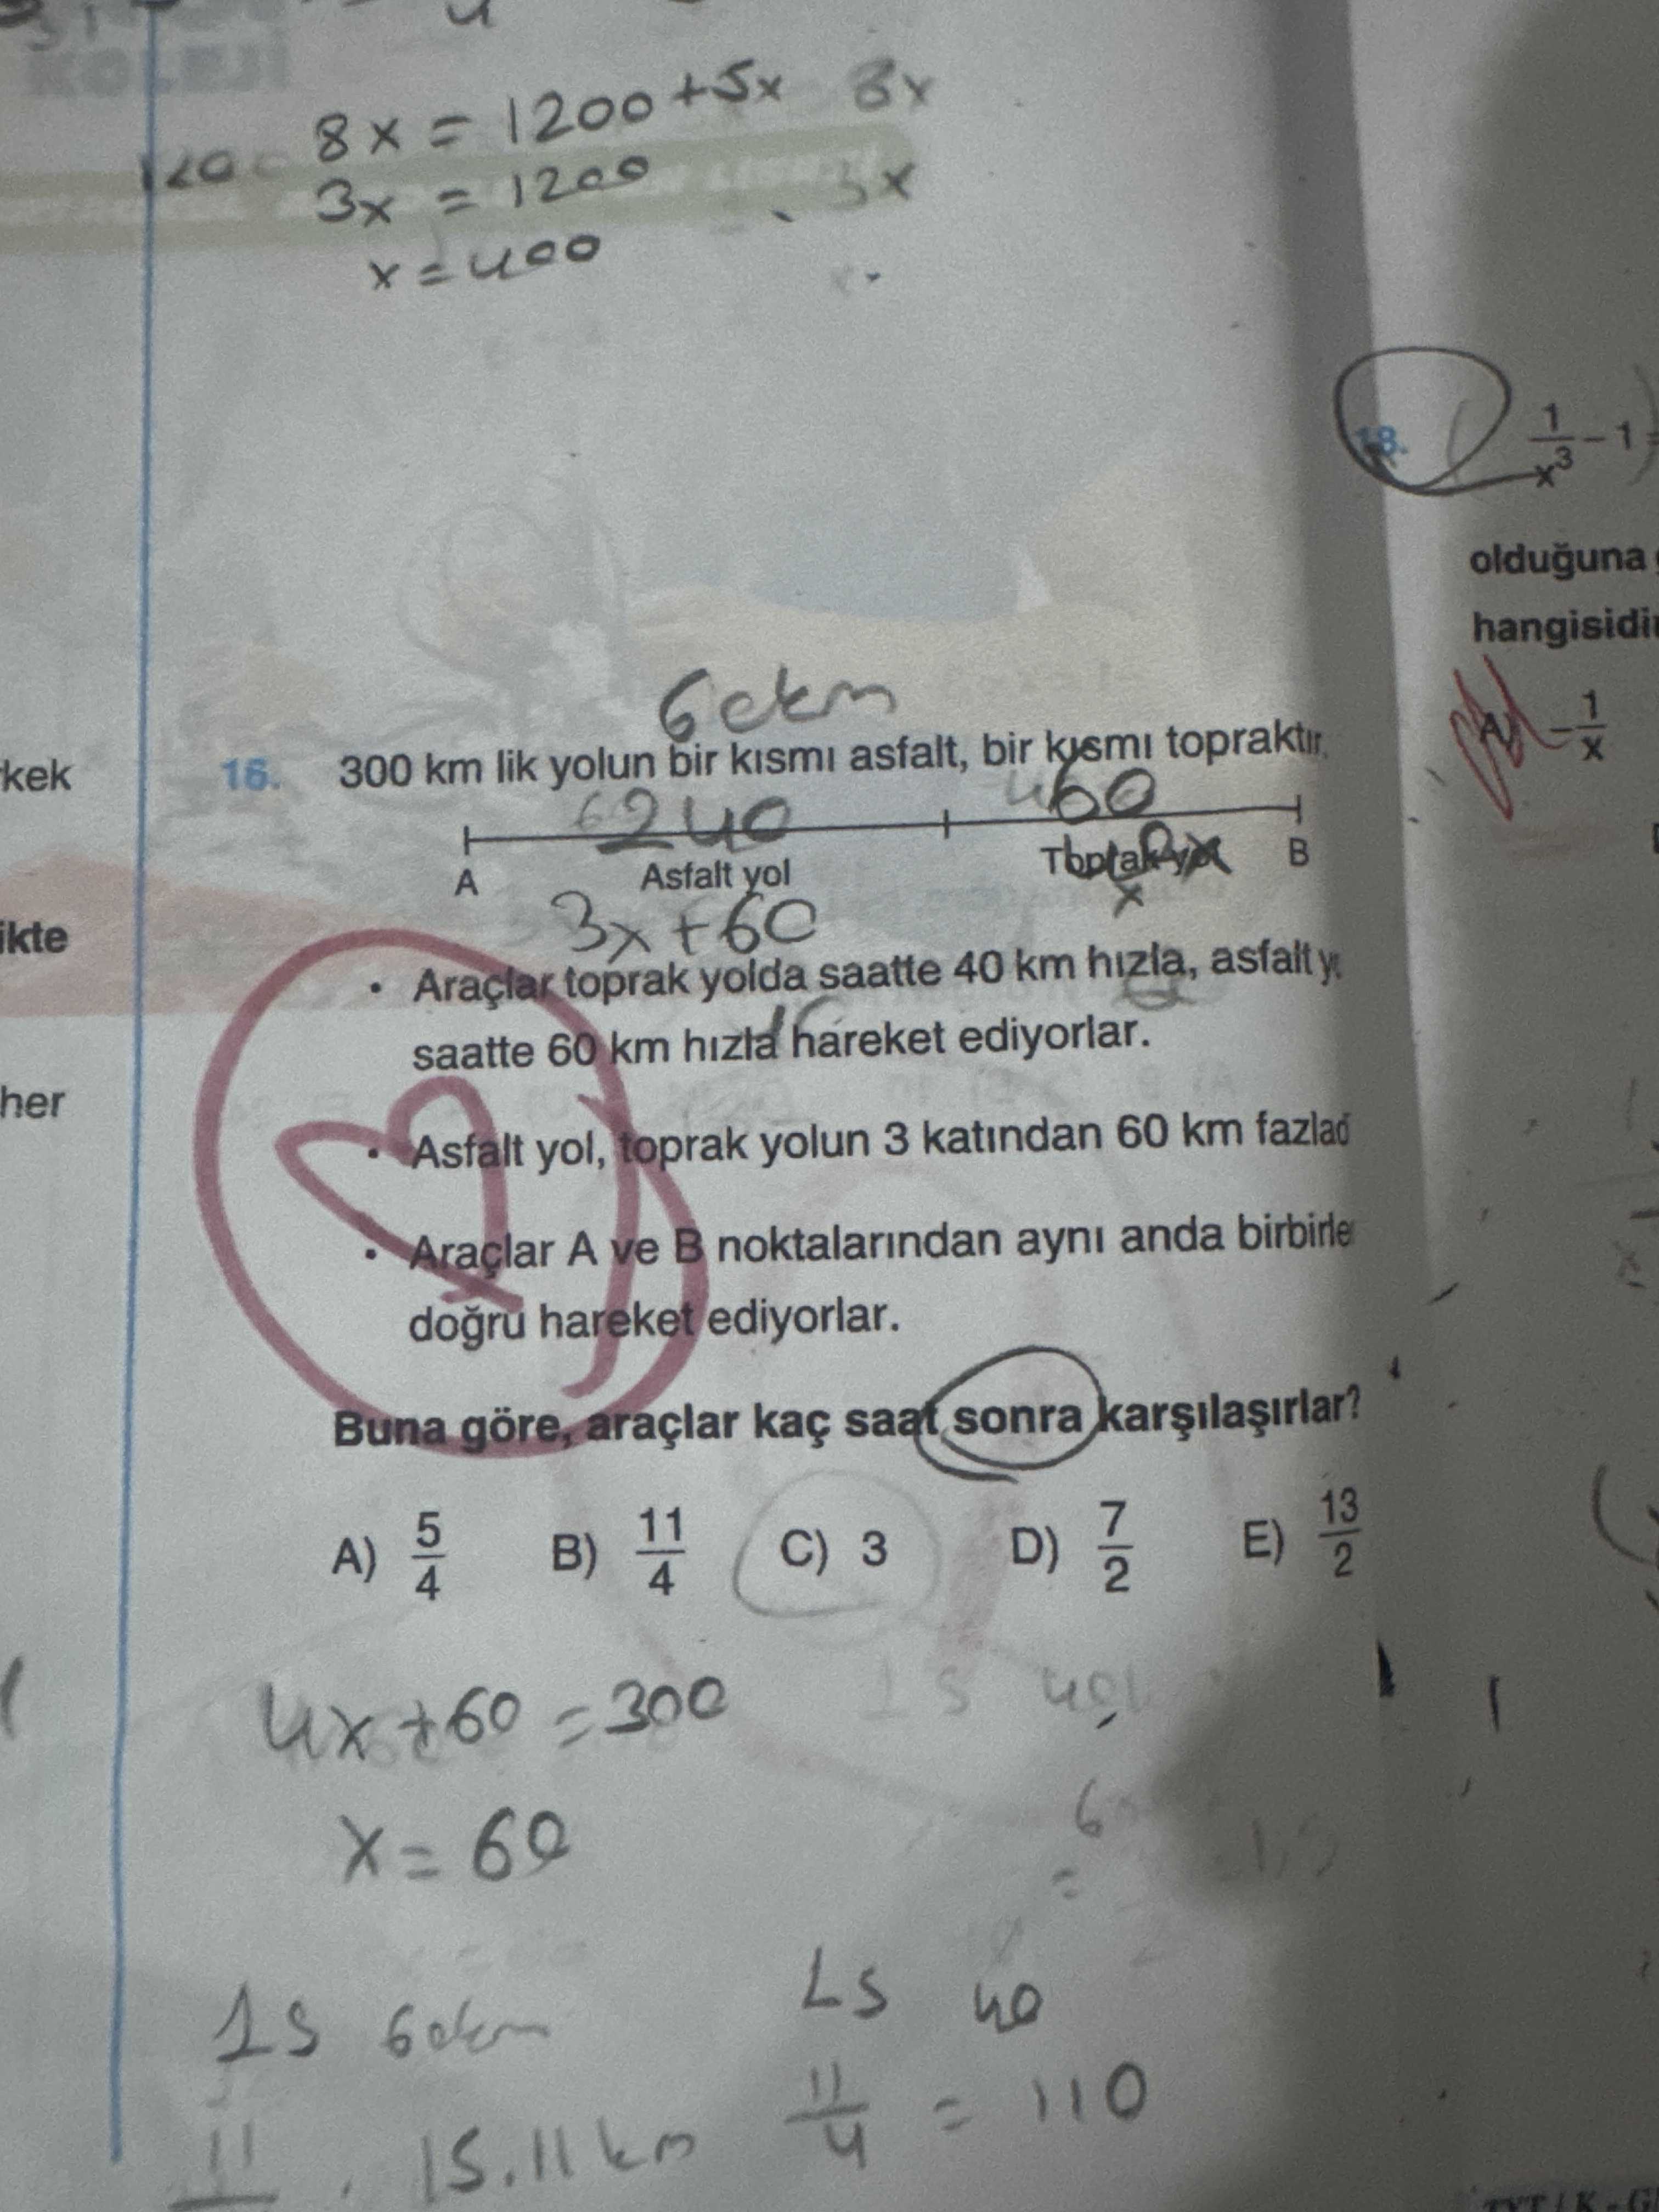 8x = 1200 + 5x 8x
3x = 1200
x = 400
kek
ikte
her
60km
16. 300 km lik yolun bir kısmı asfalt, bir kısmı topraktır.
240 60
A Asfalt yol Toprak yol B
3x + 60 x
• Araçlar toprak yolda saatte 40 km hızla, asfalt y
saatte 60 km hızla hareket ediyorlar.
• Asfalt yol, toprak yolun 3 katından 60 km fazlad
• Araçlar A ve B noktalarından aynı anda birbirle
doğru hareket ediyorlar.
Buna göre, araçlar kaç saat sonra karşılaşırlar?
A) 5/4 B) 11/4 C) 3 D) 7/2 E) 13/2
4x + 60 = 300
x = 60
1s 60km 1s 40
11 15.11 km 11/4 = 110
18. 1/x³ - 1
olduğuna
hangisidi
A) -1/x